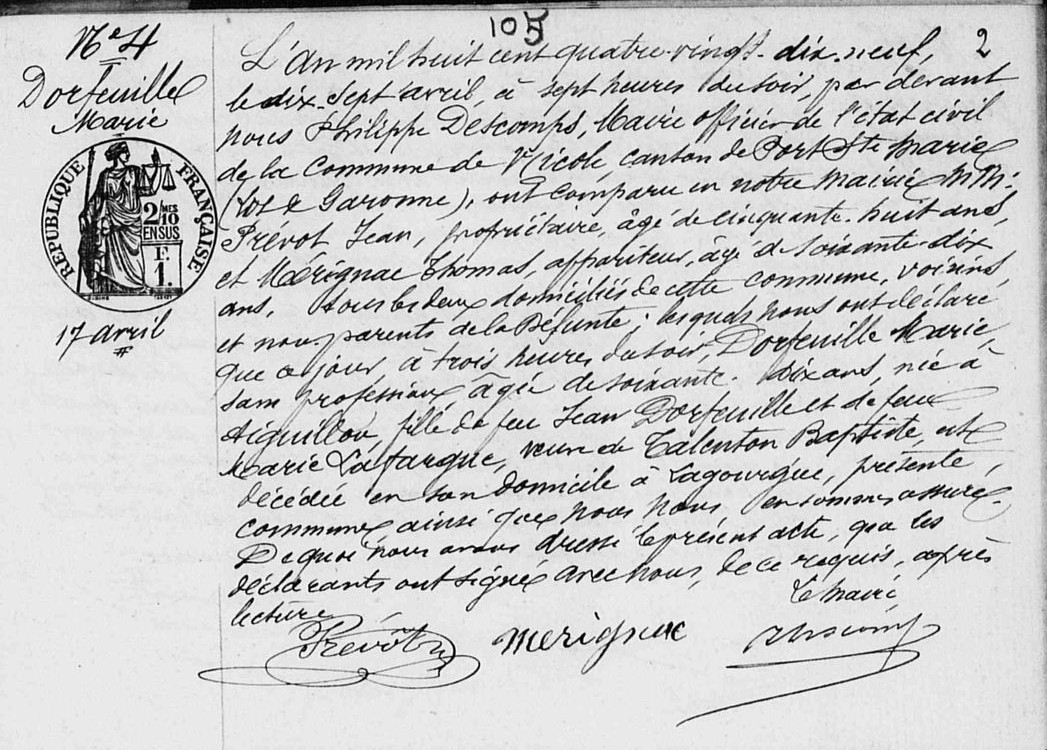 105
2
N° 4
Dorfeuille
Marie
RÉPUBLIQUE FRANÇAISE
2/MES 10
EN SUS
F.
1.
17 avril
L'An mil huit cent quatre-vingt-dix-neuf,
le dix-sept avril, à sept heures du soir, par devant
nous Philippe Descomps, Maire officier de l'état civil
de la commune de Nicole, canton de Port Ste Marie
(Lot & Garonne), ont comparu en notre mairie MM:
Prévot Jean, propriétaire, âgé de cinquante-huit ans,
et Mérignac Thomas, appariteur, âgé de soixante-dix
ans, tous les deux domiciliés de cette commune, voisins,
et non parents de la Défunte; lesquels nous ont déclaré
que ce jour, à trois heures du soir, Dorfeuille Marie,
sans profession, âgée de soixante-dix ans, née à
Aiguillon, fille de feu Jean Dorfeuille et de feue
Marie Lafargue, veuve de Talenton Baptiste, est
décédée en son domicile à Lagourgue, présente
commune, ainsi que nous nous en sommes assuré.
De quoi nous avons dressé le présent acte, que les
déclarants ont signé avec nous, de ce requis, après
lecture.
Le Maire
Prévot
Merignac
Descomps